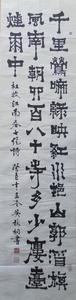 千里鶯啼綠映紅水邨山郭酒旗
風南朝四百八十寺多少廔臺
煙雨中 杜牧江南春七絕詩